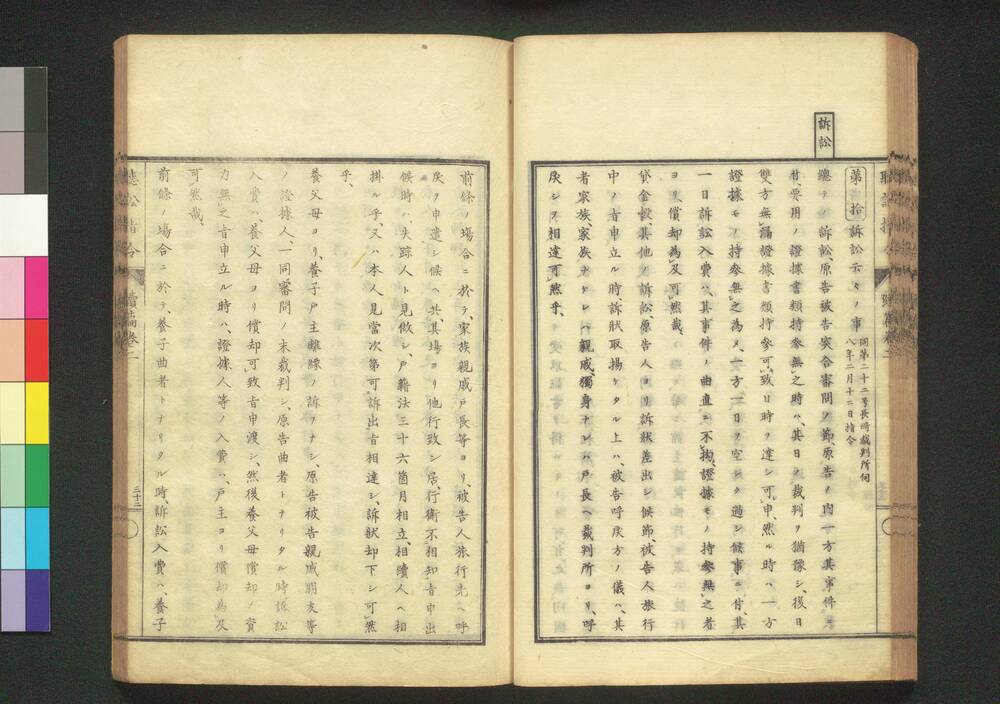 訴訟
第拾 訴訟云々ノ事 同第二十二号長崎裁判所伺
八年二月十二日指令
總テノ訴訟、原告被告突合審問ノ節、原告ノ内一方其事件ニ
付、要用ノ證據書類持參無之時ハ、其日ノ裁判ヲ猶豫シ、後日
雙方無漏證據書類持參可致日時ヲ達シ可申、然ル時ハ、一方
證據モノ持參無之為メ、一方一日ヲ空シク過シ候事ニ付、其
一日訴訟入費ハ、其事件ノ曲直ニ不拘、證據モノ持參無之者
ヨリ償却為及可然哉、
貸金設其他ノ訴訟、原告人ヨリ訴狀差出シ候節、被告人旅行
中ノ旨申立ル時、訴狀取揚ケタル上ハ、被告呼戻方ノ儀ハ、其
者家族、家族ナケレハ親戚、獨身ナレハ戸長ヘ裁判所ヨリ、呼
戻シヲ相達可然乎、
前條ノ場合ニ於テ、家族親戚戸長等ヨリ、被告人旅行先ヘ呼
戻ヲ申遣シ候ヘ共、其場ヨリ他行致シ居、行衞不相知旨申出
候時ハ、失踪人ト見做シ、戸籍法三十六箇月相立、相續人ヘ相
掛ル乎、又ハ本人見當次第可訴出旨相達シ、訴狀却下シ可然
乎、
養父母ヨリ、養子戸主離縁ノ訴ヲナシ、原告被告親戚朋友等
ノ證據人、一同審問ノ末裁判シ、原告曲者トナリタル時、訴訟
入費ハ、養父母ヨリ償却可致旨申渡シ、然後養父母償却ノ資
力無之旨申立ル時ハ、證據人等ノ入費ハ、戸主ヨリ償却為及
可然哉、
前條ノ場合ニ於テ、養子曲者トナリタル時、訴訟入費ハ、養子
聽訟指令 續編卷二
三十二